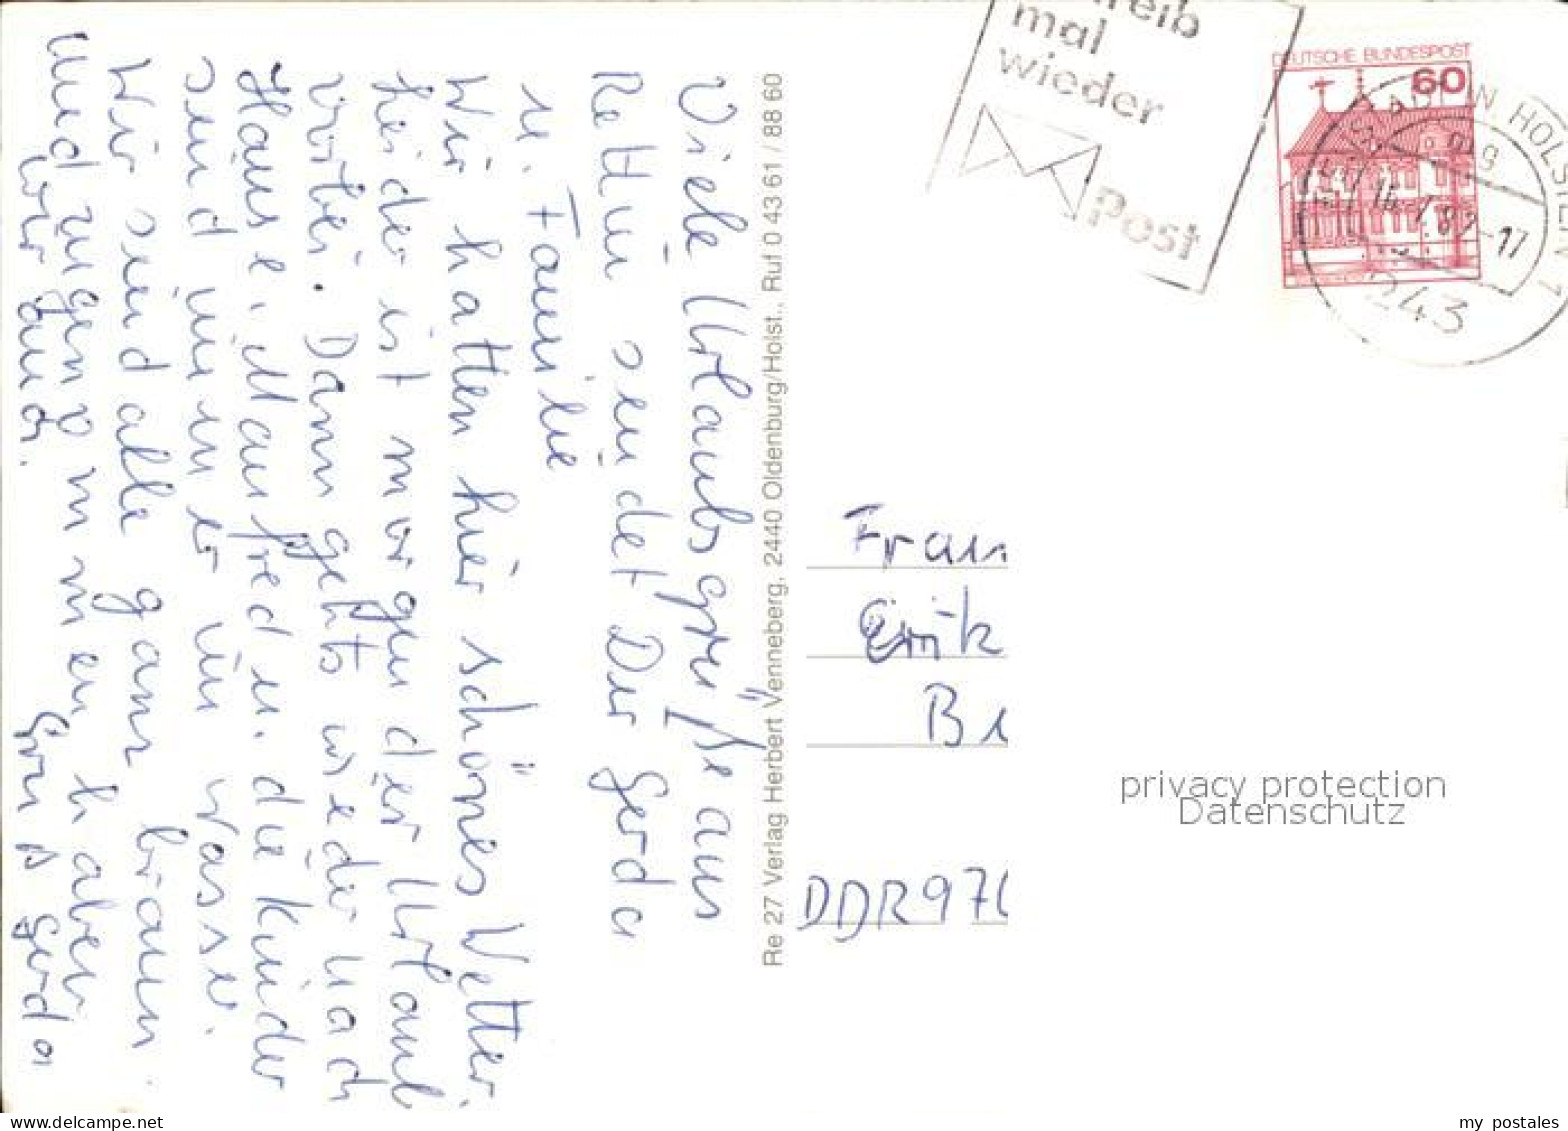 Viele Urlaubsgrüße aus
Rettin sendet Dir Gerda
u. Familie
Wir hatten hier schönes Wetter,
leider ist morgen der Urlaub
vorbei. Dann gehts wieder nach
Hause. Manfred u. die Kinder
sind immer im Wasser.
Wir sind alle ganz braun
und zugenommen haben
wir auch.
Gruß Gerda
Re 27 Verlag Herbert Venneberg, 2440 Oldenburg/Holst., Ruf 0 43 61 / 88 60
reib
mal
wieder
Post
DEUTSCHE BUNDESPOST
60
IN HOLSTEIN 1
mg
-17
243
Frau
Erik
B
DDR 97
privacy protection
Datenschutz
my postales